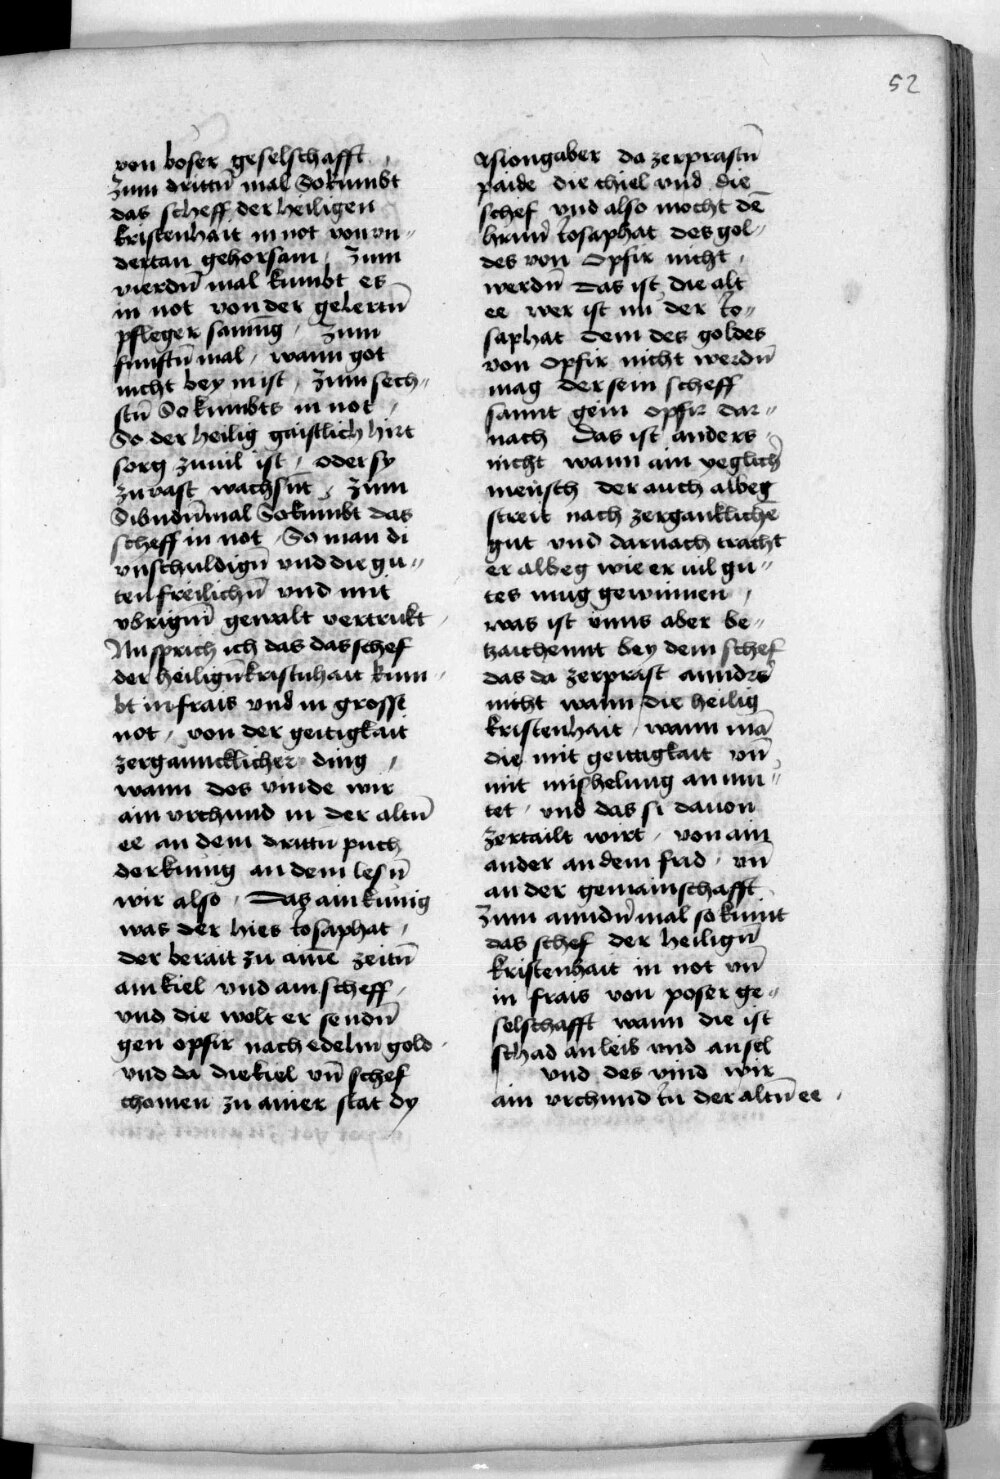 52
von boser geselschafft
Zum drittñ mal So kumbt
das scheff der heiligen
kristenhait in not von vn〃
dertan gehorsam, Zum
vierdñ mal kumbt es
in not von der gelertñ
pfleger samũg, Zum
funftñ mal, wann got
nicht bey in ist, Zum sech〃
stñ So kumbts in not,
So der heilig gaistlich hirt
sorg zuuil ist, oder sy
zu vast wachsñt, Zum
Sibndñ mal So kumbt das
scheff in not, So man di
vnschuldigñ vnd die gu〃
ten freilichñ vnd mit
vbrigm̃ gewalt vertrukt,
Nu sprich ich das das schef
der heiligñ kristnhait kum〃
bt in frais vnd in grosse
not, von der geitigkait
zergannckkicher ding,
wann des vinde wir
ain vrchund in der altñ
ee an dem drittñ puch
der kunig an dem lesñ
wir also, Das ain kunig
was der hies Josaphat,
der berait zu ainẽ zeitñ
ain kiel vnd ain scheff,
vnd die wolt er sendñ
gen opfir nach edelm gold,
vnd da die kiel vñ schef
chomen zu ainer stat dy
Asiongaber da zerprastñ
paide die chiel vnd die
schef vnd also mocht dẽ
kunĩ Josaphat des gol〃
des von Opfir nicht,
werdñ Das ist die alt
ee wer ist nu der Jo〃
saphat dem des goldes
von Opfir nicht werdñ
mag der sein scheff
sannt gein Opfir dar〃
nach Das ist anders
nicht wann ain yeglich
mensch der auch albeg
streit nach zerganklichẽ
gut vnd darnach tracht
er albeg wie er uil gu〃
tes mug gewinnen,
was ist vnns aber be〃
tzaichennt bey dem schef
das da zerprast annders
nicht wann die heilig
kristenhait, wann mã
die mit geittigkait vñ
mit mishelung an mu〃
tet, vnd das si dauon
zertailt wirt, von ain
ander an dem frid, vñ
an der gemainschafft
Zum anndñ mal so kumt
das schef der heiligñ
kristenhait in not vñ
in frais von poser ge〃
selschafft wann die ist
schad an leib vnd an sel
vnd des vind wir
ain vrchund Jn der altñ ee,